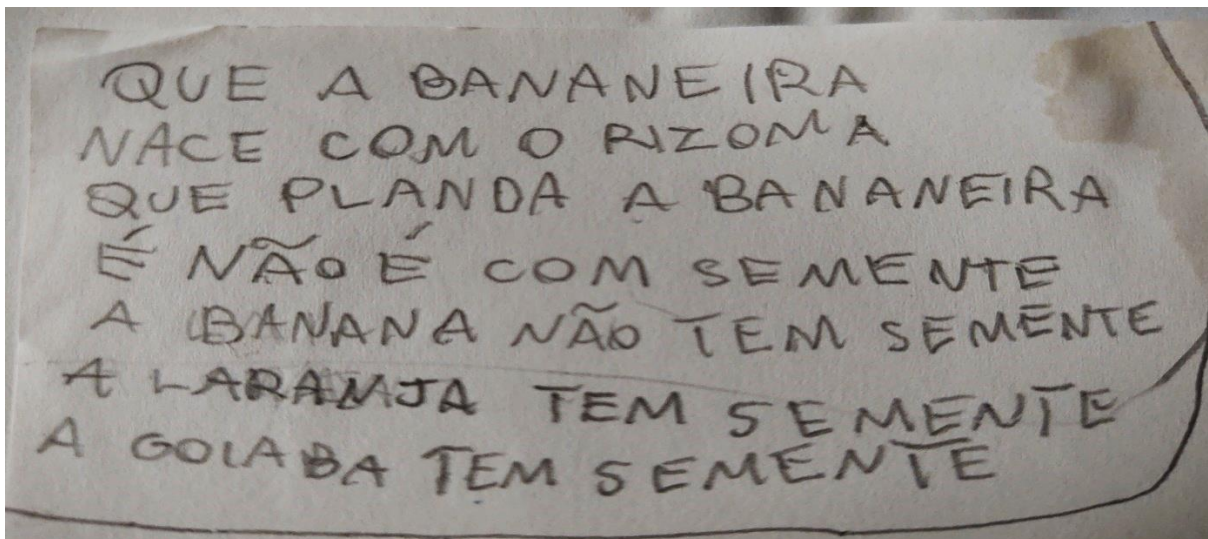 QUE A BANANEIRA
NACE COM O RIZOMA
QUE PLANDA A BANANEIRA
É NÃO É COM SEMENTE
A BANANA NÃO TEM SEMENTE
A LARANJA TEM SEMENTE
A GOIABA TEM SEMENTE